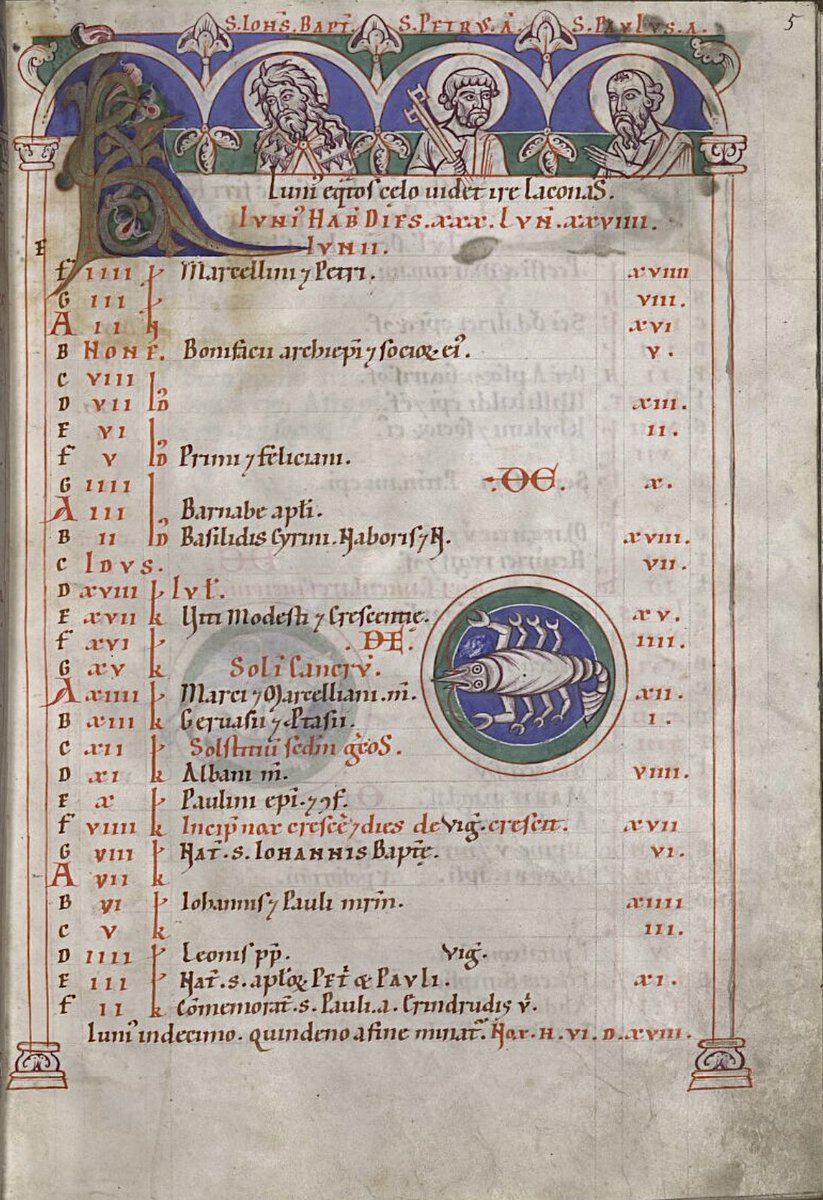 S. IOHS. BAPT. S. PETRUS. A. S. PAULUS. A.
5
Iuni' eq̄tos celo uidet ire laconas.
IVNI' HAB DIES. xxx. LVN. xxviiii.
E IVNII.
F IIII Marcellini ⁊ Petri. xviiii
G III VIII.
A II N xvi
B NON. Bonifacii archiepi ⁊ socioꝝ ei'. v.
C VIII ID
D VII ID xiii.
E VI II.
F V ID Primi ⁊ feliciani.
G IIII DE. x.
A III Barnabe apli.
B II ID Basilidis Cyrini. Naboris ⁊ N. xviii.
C IDVS. VII.
D xviii k Iul.
E xvii k Viti Modesti ⁊ Crescentie. xv.
F xvi k DE. IIII.
G xv k Sol' Cancrū.
A xiiii k Marci ⁊ Marcelliani. m. xii.
B xiii k Geruasii ⁊ Ptasii. I.
C xii k Solstitiū sedm grecos.
D xi k Albani m. viiii.
E x k Paulini epi. ⁊ ɔf.
F viiii k Incip nox cresce ⁊ dies de Vig. crescit. xvii
G viii k Nat. S. IOHANNIS Bapte. VI.
A vii k
B vi k Iohannis ⁊ Pauli mrm. xiiii
C v k III.
D IIII k Leonis pp. Vig.
E III k Nat. S. aploꝝ PETI & PAVLI. xi.
F II k Cōmemorat. S. Pauli. a.
Iuni' in decimo. quindeno a fine minat'. Nox. H. VI. D. xviii.